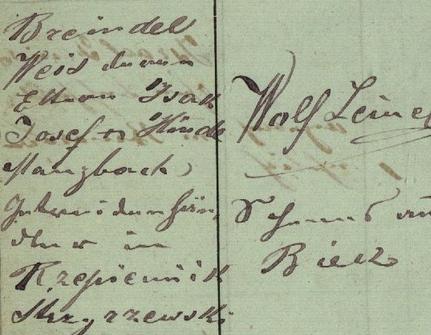 Breindel
Weis deren
Eltern Isak
Josef u Hinde
Manzbach
händler in
Rzepiennik
Strzyrzewski
Wolf Leiner
Biecz